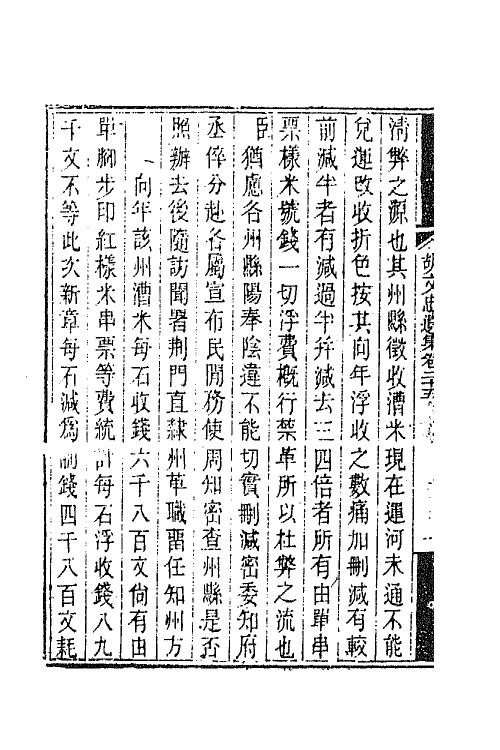 清弊之源也其州縣徵收漕米現在運河未通不能
兌運改收折色按其向年浮收之數痛加刪減有較
前減半者有減過半幷減去三四倍者所有由單串
票樣米號錢一切浮費概行禁革所以杜弊之流也
臣猶慮各州縣陽奉陰違不能切實刪減密委知府
丞倅分赴各屬宣布民閒務使周知密查州縣是否
照辦去後隨訪聞署荆門直隸州革職畱任知州方
向年該州漕米每石收錢六千八百文尙有由
單腳步印紅樣米串票等費統計每石浮收錢八九
千文不等此次新章每石減爲制錢四千八百文耗
胡文忠遺集卷二十五